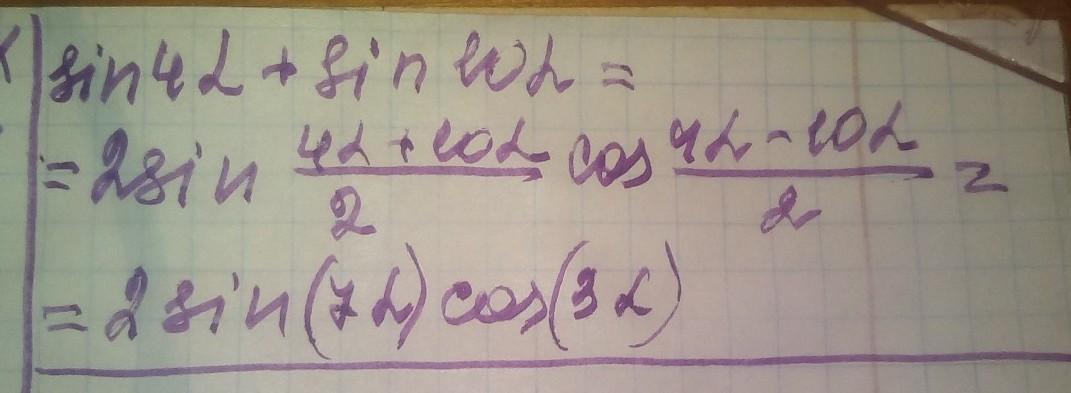 sin4α + sin10α =
= 2sin (4α + 10α)/2 cos (4α - 10α)/2 =
= 2 sin(7α) cos(3α)